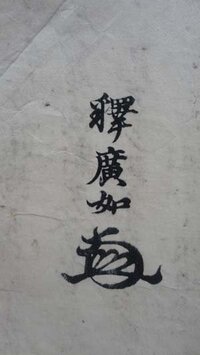 釋廣如